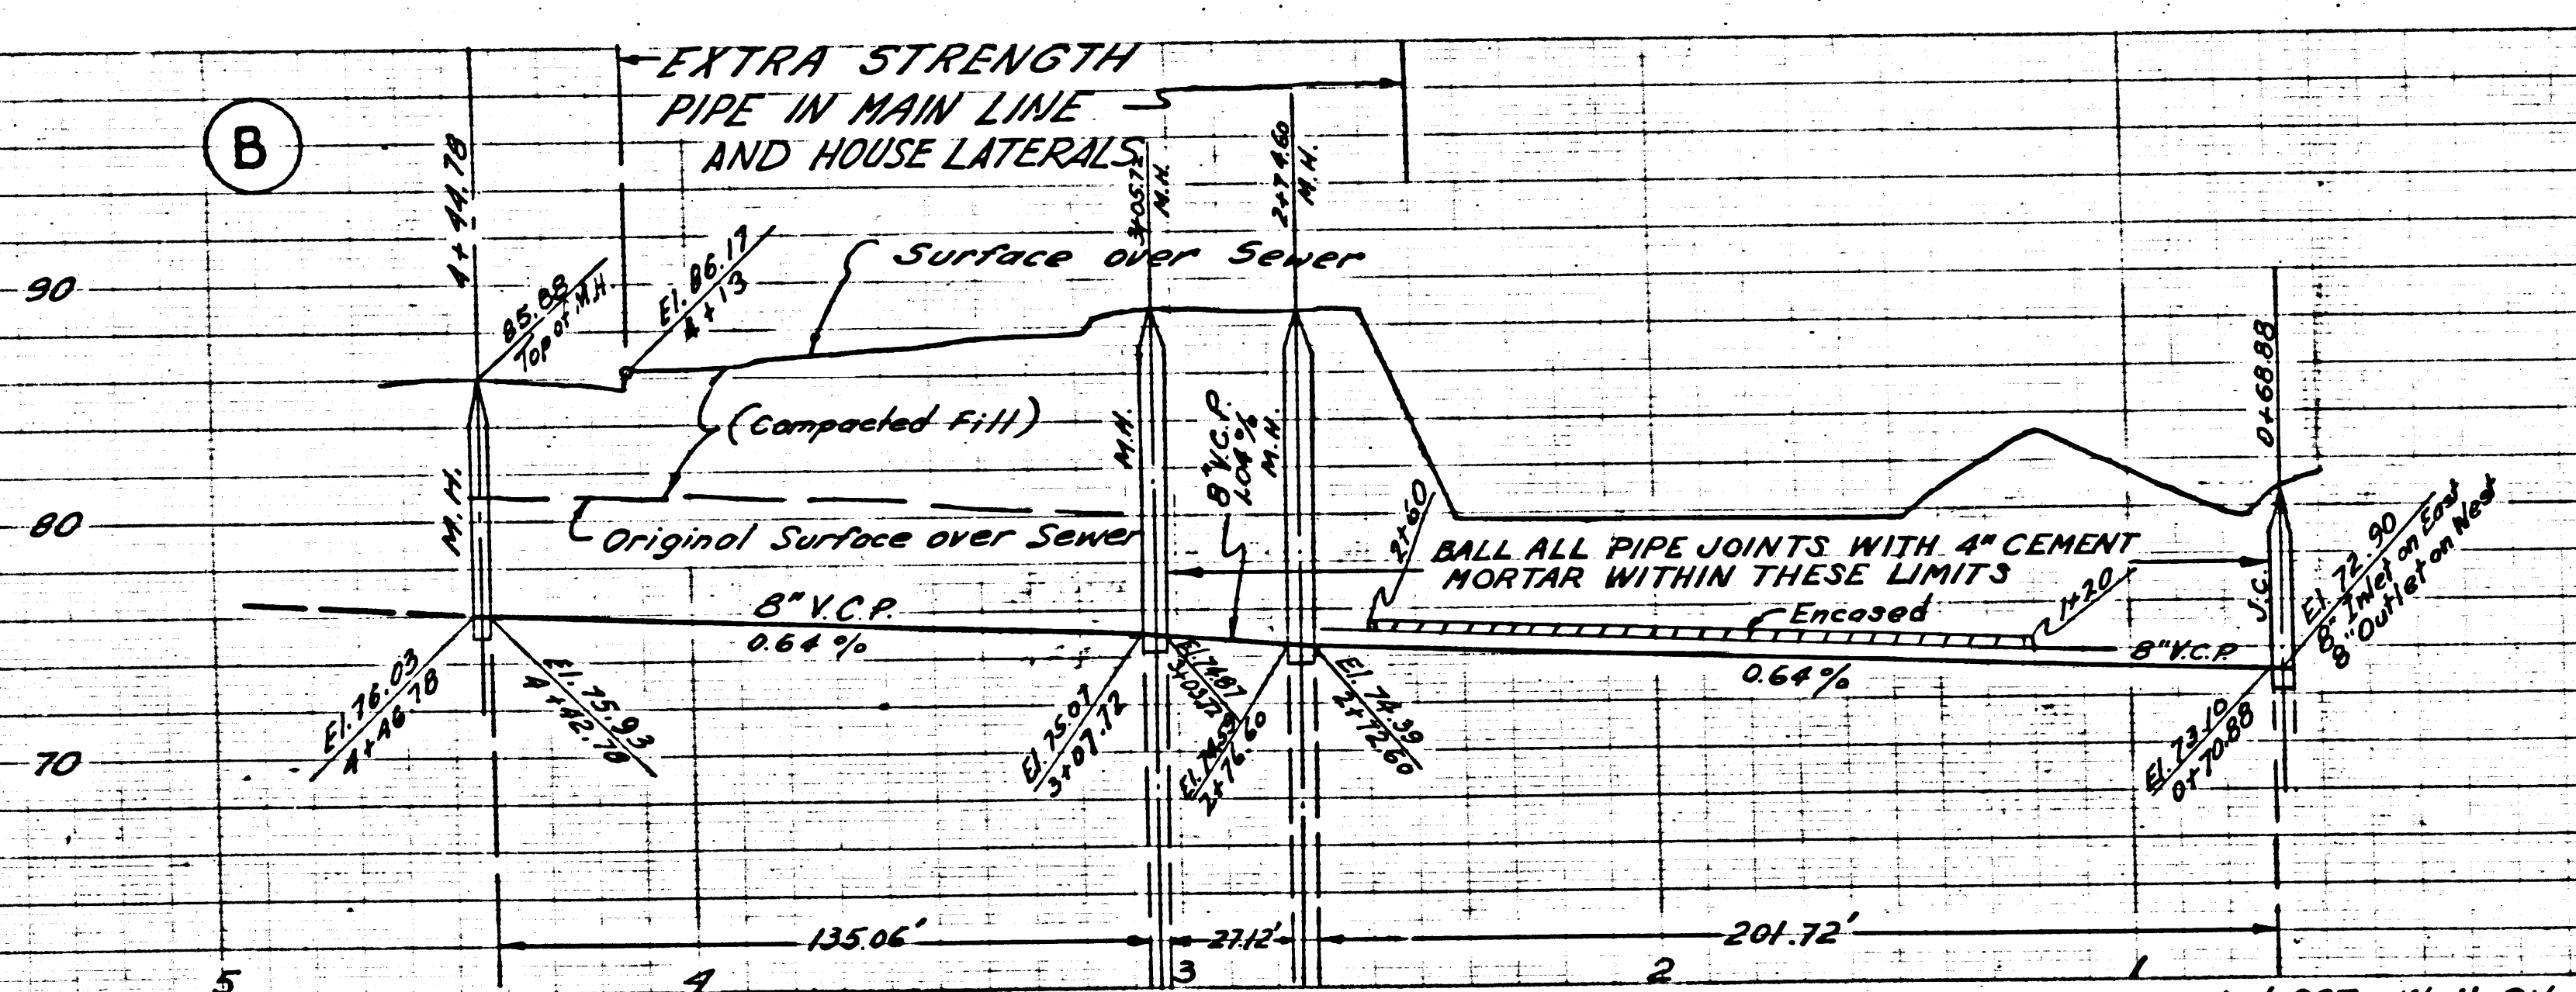 EXTRA STRENGTH
PIPE IN MAIN LINE
AND HOUSE LATERALS
B
4+44.78
3+05.72
M.H.
2+74.60
M.H.
85.88
Top of M.H.
El. 86.17
4+13
Surface over Sewer
90
0+68.88
(Compacted Fill)
M.H.
M.H.
8" V.C.P.
1.04%
M.H.
2+60
80
Original Surface over Sewer
BALL ALL PIPE JOINTS WITH 4" CEMENT
MORTAR WITHIN THESE LIMITS
Encased
1+20
J.C.
El. 72.90
8" Inlet on East
8" Outlet on West
8" V.C.P.
0.64%
8" V.C.P.
0.64%
El. 76.03
4+46.78
El. 75.93
4+42.78
El. 75.07
3+07.72
El. 74.87
3+03.72
El. 74.59
2+76.60
El. 74.39
2+72.60
El. 73.10
0+70.88
70
135.06'
27.12'
201.72'
5
4
3
2
1